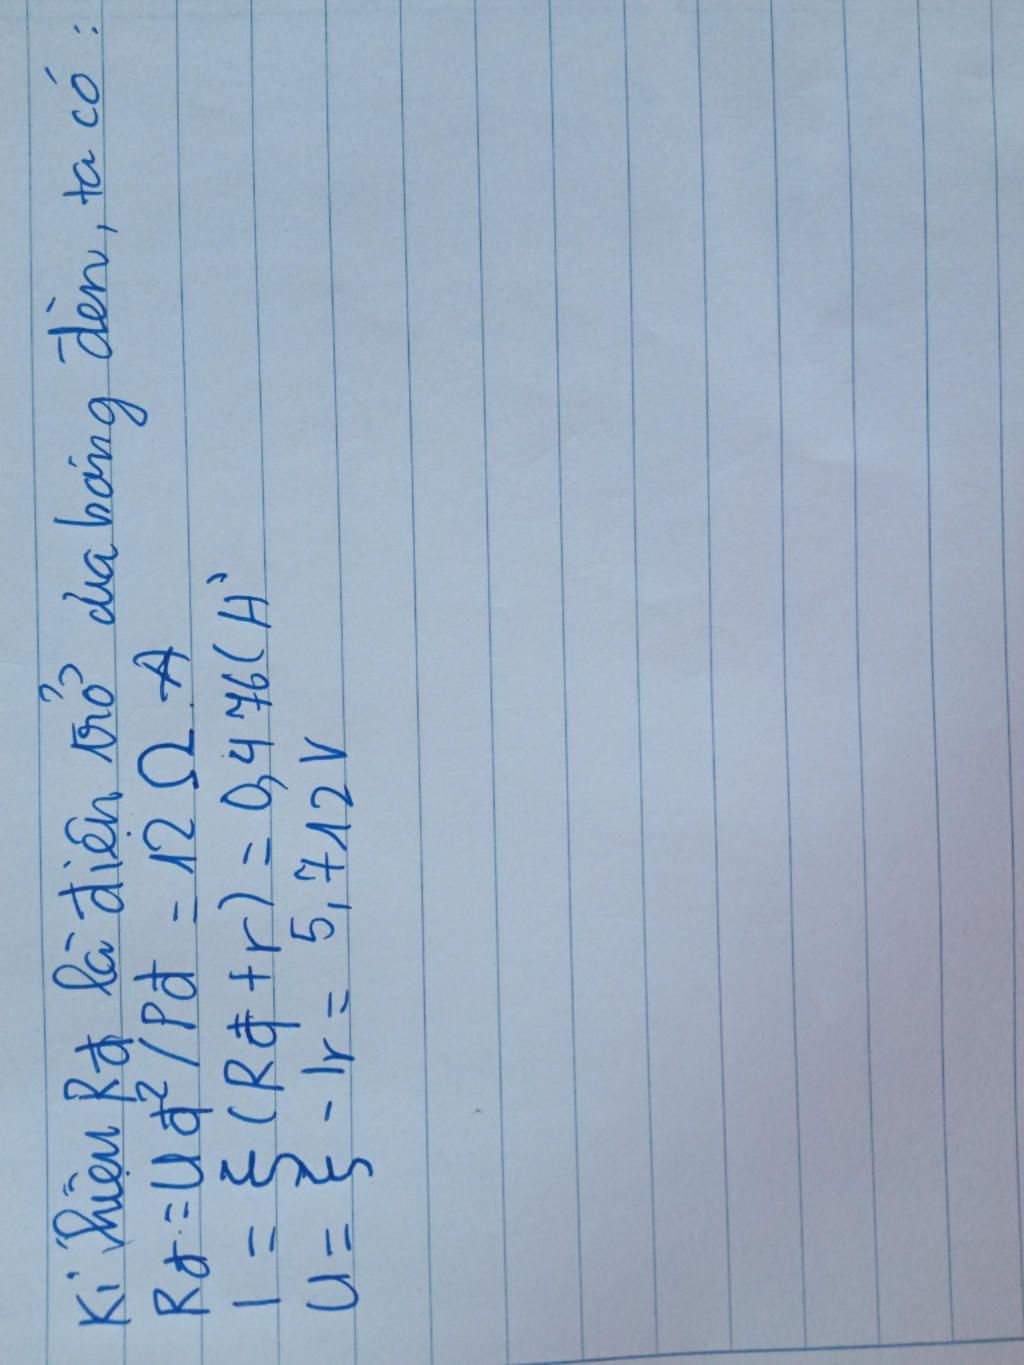 Kí hiệu Rđ là điện trở của bóng đèn, ta có :
Rđ = Uđ²/Pđ = 12 Ω. A
I = ξ (Rđ + r) = 0,476 (A)
U = ξ - Ir = 5,712 V